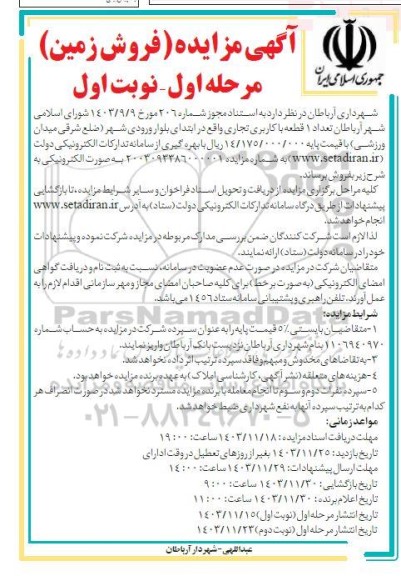 آگهی مزایده (فروش زمین)
مرحله اول - نوبت اول
جمهوری اسلامی ایران
شهرداری آرباطان در نظر دارد به استناد مجوز شماره ۲۰۶ مورخ ۱۴۰۳/۹/۹ شورای اسلامی
شهر آرباطان تعداد ۱ قطعه با کاربری تجاری واقع در ابتدای بلوار ورودی شهر (ضلع شرقی میدان
ورزشی) با قیمت پایه ۱۴/۱۷۵/۰۰۰/۰۰۰ ریال با بهره گیری از سامانه تدارکات الکترونیکی دولت
(www.setadiran.ir) به شماره مزایده ۲۰۰۳۰۹۳۳۸۶۰۰۰۰۰۱ به صورت الکترونیکی به
شرح زیر بفروش برساند.
کلیه مراحل برگزاری مزایده از دریافت و تحویل اسناد فراخوان و سایر شرایط مزایده، تا بازگشایی
پیشنهادات از طریق درگاه سامانه تدارکات الکترونیکی دولت (ستاد) به آدرس www.setadiran.ir
انجام خواهد شد.
لذا لازم است شرکت کنندگان ضمن بررسی مدارک مربوطه در مزایده شرکت نموده و پیشنهادات
خود را در سامانه دولت (ستاد) ارائه نمایند.
متقاضیان شرکت در مزایده در صورت عدم عضویت در سامانه، نسبت به ثبت نام و دریافت گواهی
امضای الکترونیکی (به صورت برخط) برای کلیه صاحبان امضای مجاز و مهر سازمانی اقدام لازم را به
عمل آورند، تلفن راهبری و پشتیبانی سامانه ستاد ۱۴۵۶ می باشد.
شرایط مزایده:
۱- متقاضیان بایستی ۵٪ قیمت پایه را به عنوان سپرده شرکت در مزایده به حساب شماره
۱۱۰۶۹۴۰۹۷۰ بنام شهرداری آرباطان نزد پست بانک آرباطان واریز نمایند.
۳- به تقاضاهای مخدوش و مبهم و فاقد سپرده ترتیب اثر داده نخواهد شد.
۴- هزینه های متعلقه (نشر آگهی، کارشناسی املاک) به عهده برنده مزایده خواهد بود.
۵- سپرده نفرات دوم و سوم تا انجام معامله با برنده مزایده مسترد نخواهد شد در صورت انصراف هر
کدام به ترتیب سپرده آنها به نفع شهرداری ضبط خواهد شد.
مواعد زمانی:
مهلت دریافت اسناد مزایده: ۱۴۰۳/۱۱/۱۸ ساعت: ۱۹:۰۰
تاریخ بازدید: ۱۴۰۳/۱۱/۲۵ بغیر از روزهای تعطیل در وقت ادارای
مهلت ارسال پیشنهادات: ۱۴۰۳/۱۱/۲۹ ساعت: ۱۴:۰۰
تاریخ بازگشایی: ۱۴۰۳/۱۱/۳۰ ساعت: ۹:۰۰
تاریخ اعلام برنده: ۱۴۰۳/۱۱/۳۰ ساعت: ۱۱:۰۰
تاریخ انتشار مرحله اول (نوبت اول) ۱۴۰۳/۱۱/۱۵
تاریخ انتشار مرحله اول (نوبت دوم) ۱۴۰۳/۱۱/۲۳
عبداللهی - شهردار آرباطان
ParsNamadData
۰۲۱-۸۸۳۴۹۶۷۰-۵